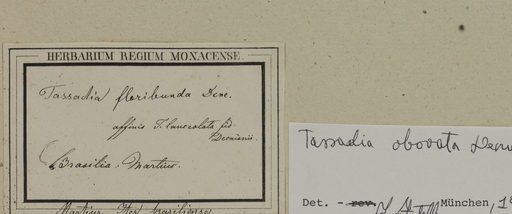 HERBARIUM REGIUM MONACENSE.
Tassadia floribunda Dcne.
affinis T. lanceolata
Brasilia. Martius.
Martius Iter brasiliense
Tassadia obovata
Det. - rev. München,